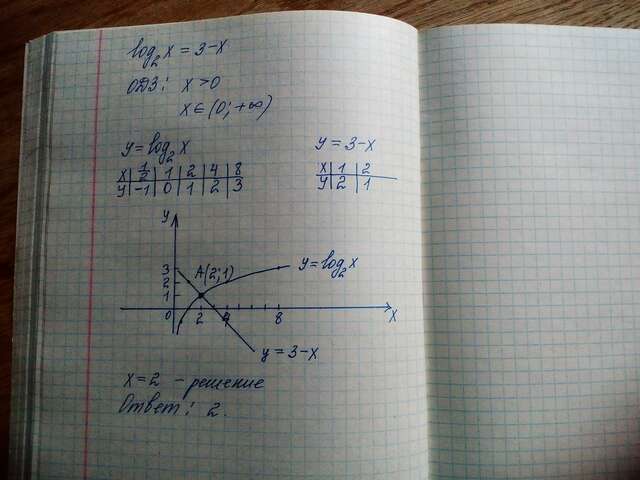 log₂x = 3-x
ОДЗ: x>0
x∈(0;+∞)
y=log₂x
y=3-x
x | 1/2 | 1 | 2 | 4 | 8
y | -1 | 0 | 1 | 2 | 3
x | 1 | 2
y | 2 | 1
y
3
2
1
0
A(2;1)
y=log₂x
2 4 8
x
y=3-x
x=2 - решение
Ответ: 2.